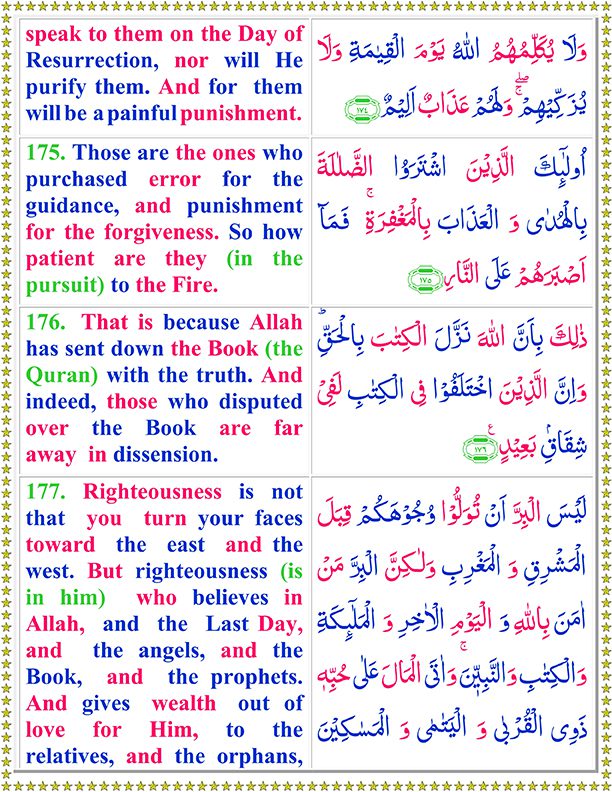 speak to them on the Day of
Resurrection, nor will He
purify them. And for them
will be a painful punishment.
وَلَا يُكَلِّمُهُمُ اللّٰهُ يَوْمَ الْقِيٰمَةِ وَلَا
يُزَكِّيْهِمْ ۖۚ وَلَهُمْ عَذَابٌ اَلِيْمٌ ﴿١٧٤﴾
175. Those are the ones who
purchased error for the
guidance, and punishment
for the forgiveness. So how
patient are they (in the
pursuit) to the Fire.
اُولٰٓئِكَ الَّذِيْنَ اشْتَرَوُا الضَّلٰلَةَ
بِالْهُدٰى وَ الْعَذَابَ بِالْمَغْفِرَةِ ۚ فَمَاۤ
اَصْبَرَهُمْ عَلَى النَّارِ ﴿١٧٥﴾
176. That is because Allah
has sent down the Book (the
Quran) with the truth. And
indeed, those who disputed
over the Book are far
away in dissension.
ذٰلِكَ بِاَنَّ اللّٰهَ نَزَّلَ الْكِتٰبَ بِالْحَقِّ ؕ
وَاِنَّ الَّذِيْنَ اخْتَلَفُوْا فِى الْكِتٰبِ لَفِىْ
شِقَاقٍۭ بَعِيْدٍ ﴿١٧٦﴾ ع
177. Righteousness is not
that you turn your faces
toward the east and the
west. But righteousness (is
in him) who believes in
Allah, and the Last Day,
and the angels, and the
Book, and the prophets.
And gives wealth out of
love for Him, to the
relatives, and the orphans,
لَيْسَ الْبِرَّ اَنْ تُوَلُّوْا وُجُوْهَكُمْ قِبَلَ
الْمَشْرِقِ وَ الْمَغْرِبِ وَلٰكِنَّ الْبِرَّ مَنْ
اٰمَنَ بِاللّٰهِ وَ الْيَوْمِ الْاٰخِرِ وَ الْمَلٰٓئِكَةِ
وَالْكِتٰبِ وَالنَّبِيّٖنَ ۚ وَاٰتَى الْمَالَ عَلٰى حُبِّهٖ
ذَوِى الْقُرْبٰى وَ الْيَتٰمٰى وَ الْمَسٰكِيْنَ